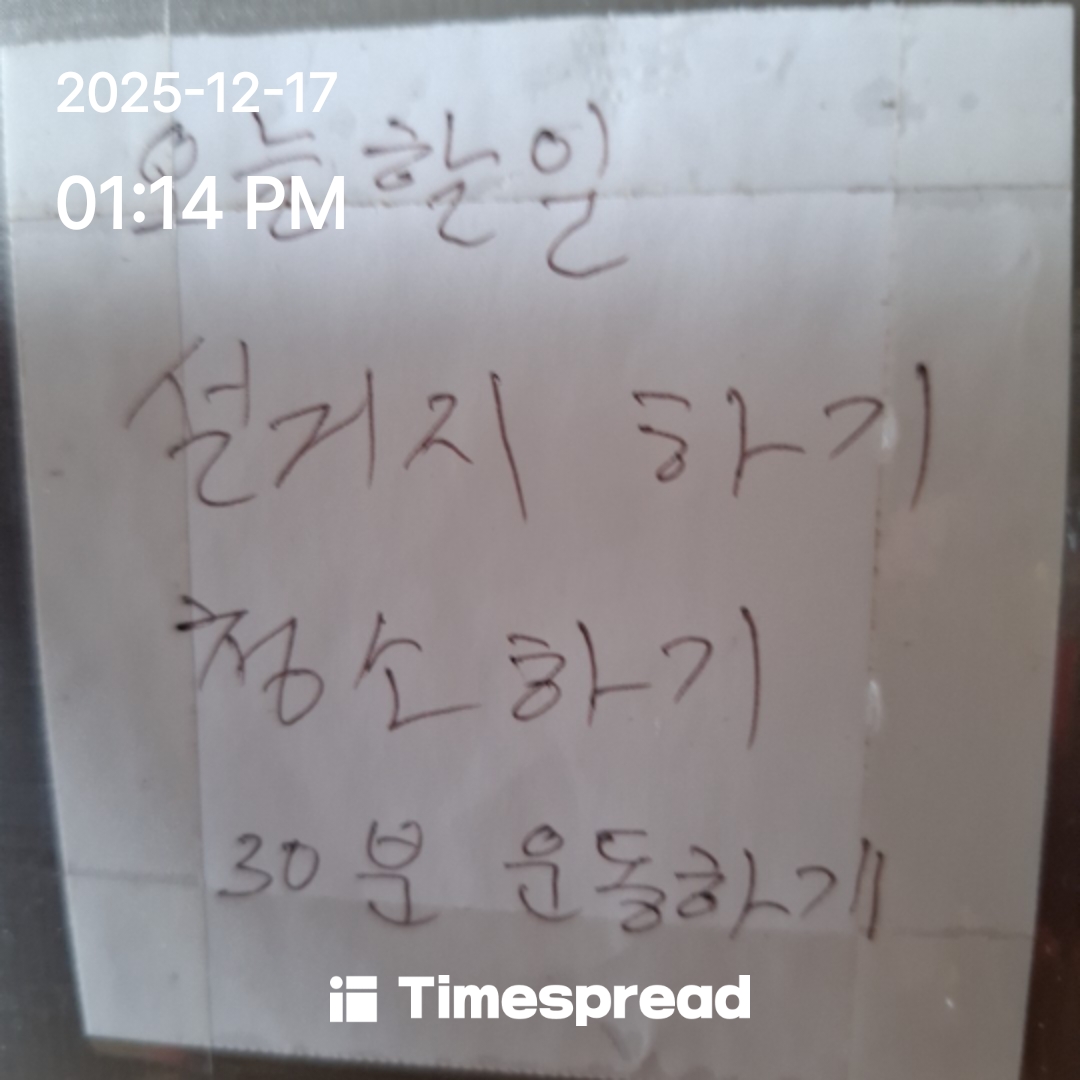 2025-12-17
오늘 할 일
01:14 PM
설거지 하기
청소하기
30분 운동하기
Timespread